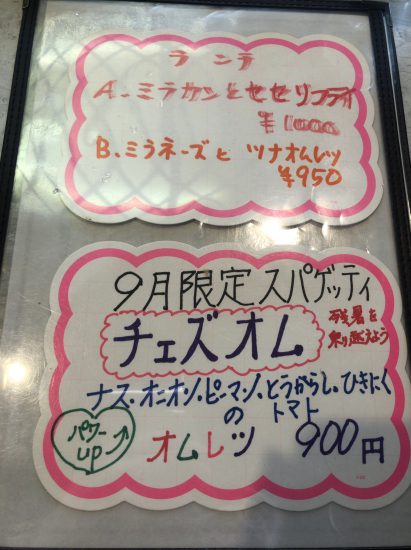 ランチ
A.ミラカンとセセリフライ
¥1000
B.ミラネーズと ツナオムレツ
¥950
9月限定スパゲッティ
チェズオム
残暑を
乗り越えよう
ナス・オニオン・ピーマン・とうがらし・ひきにく
の トマト
パワー
up
オムレツ 900円